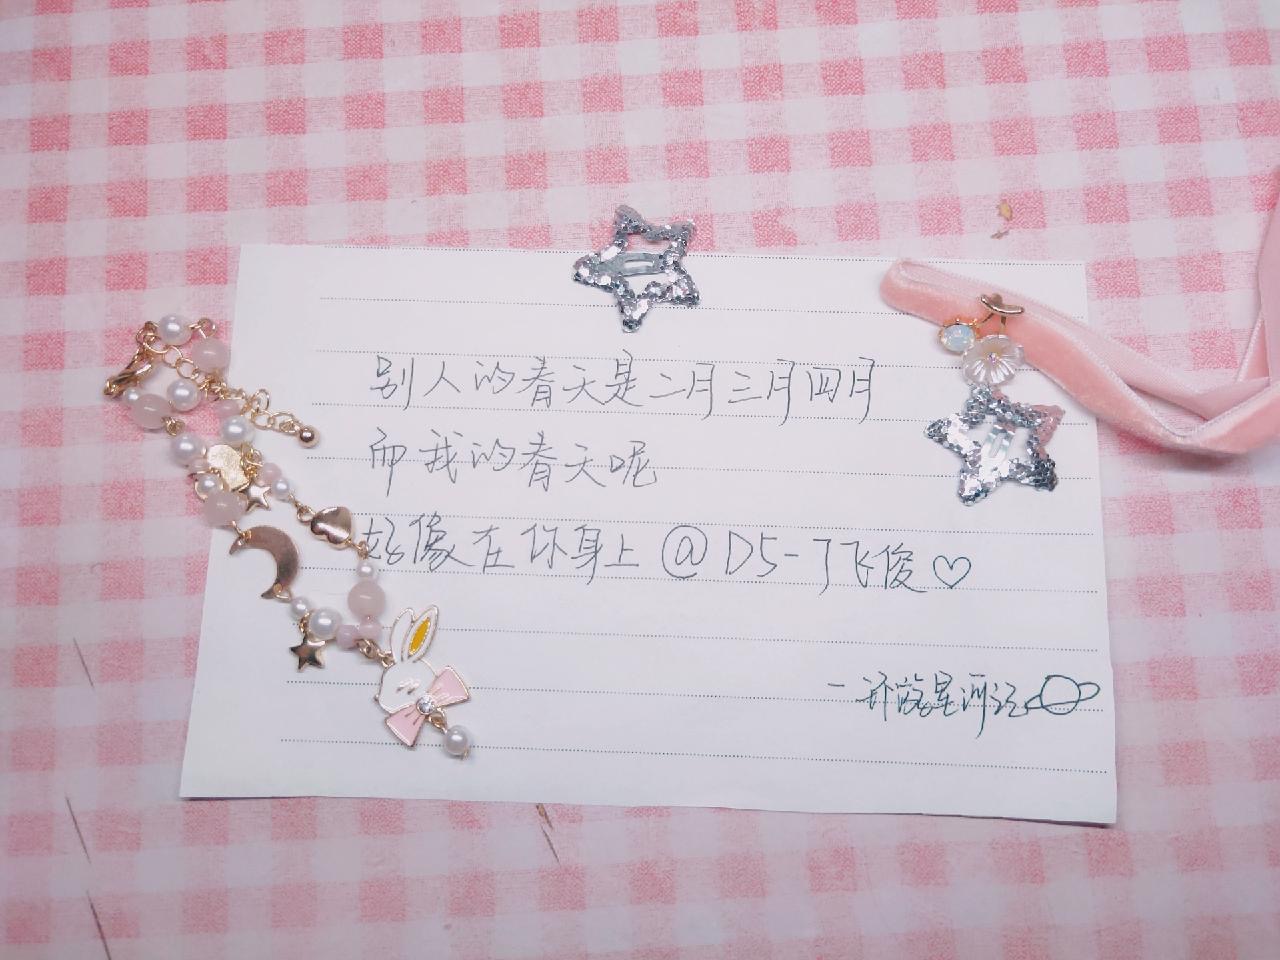 别人的春天是二月三月四月
而我的春天呢
好像在你身上@D5-丁飞俊♡
星河